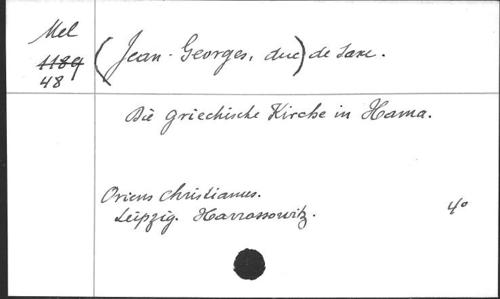 Mel
1189
48
(Jean-Georges, duc) de Saxe.
Die griechische Kirche in Hama.
Oriens Christianus.
Leipzig. Harrassowitz.
4°